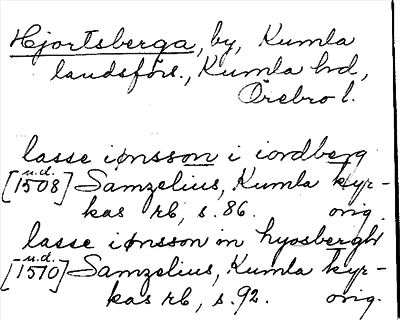 Hjortsberga, by, Kumla
landsförs., Kumla hd,
Örebro l.
lasse iønsson i iordberg
u.d.
[1508] Samzelius, Kumla kyr-
kas rb, s. 86. orig.
lasse iønsson in hyosbergh
u.d.
[1510] Samzelius, Kumla kyr-
kas rb, s. 92. orig.